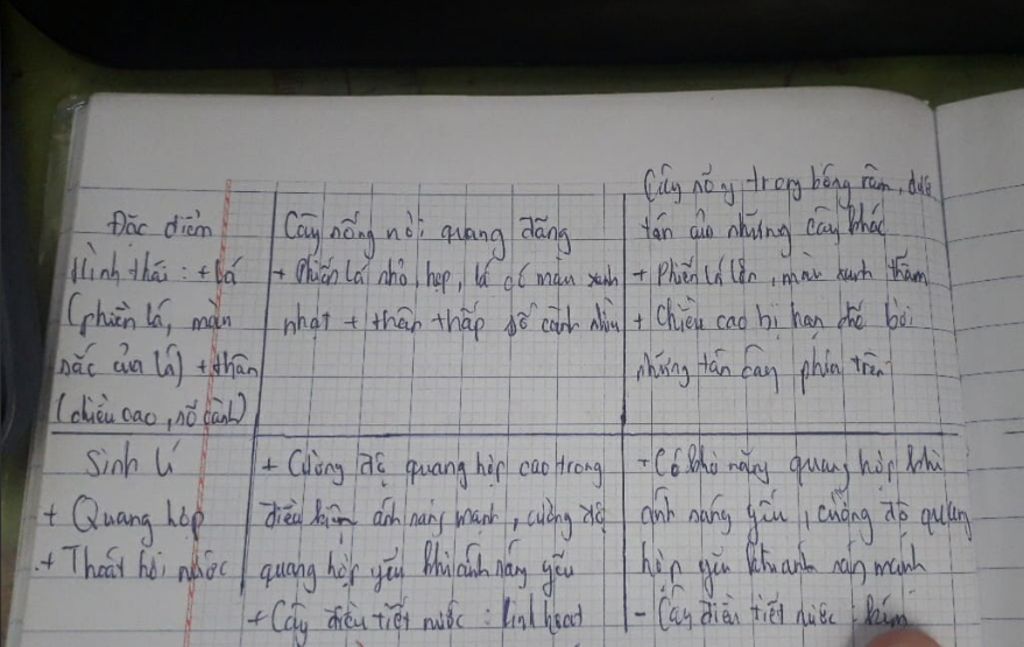 Đặc điểm
Hình thái: + Lá
(phiến lá, màu
sắc của lá) + thân
(chiều cao, số cành)
Cây sống nơi quang đãng
+ Phiến lá nhỏ, hẹp, lá có màu xanh
nhạt + thân thấp số cành nhiều
Cây sống trong bóng râm, dưới
tán của những cây khác
+ Phiến lá lớn, màu xanh thẫm
+ Chiều cao bị hạn chế bởi
những tán cây phía trên
Sinh lí
+ Quang hợp
+ Thoát hơi nước
+ Cường độ quang hợp cao trong
điều kiện ánh sáng mạnh, cường độ
quang hợp yếu khi ánh sáng yếu
+ Cây điều tiết nước: linh hoạt
- Có khả năng quang hợp khi
ánh sáng yếu, cường độ quang
hợp yếu khi ánh sáng mạnh
- Cây điều tiết nước: kém